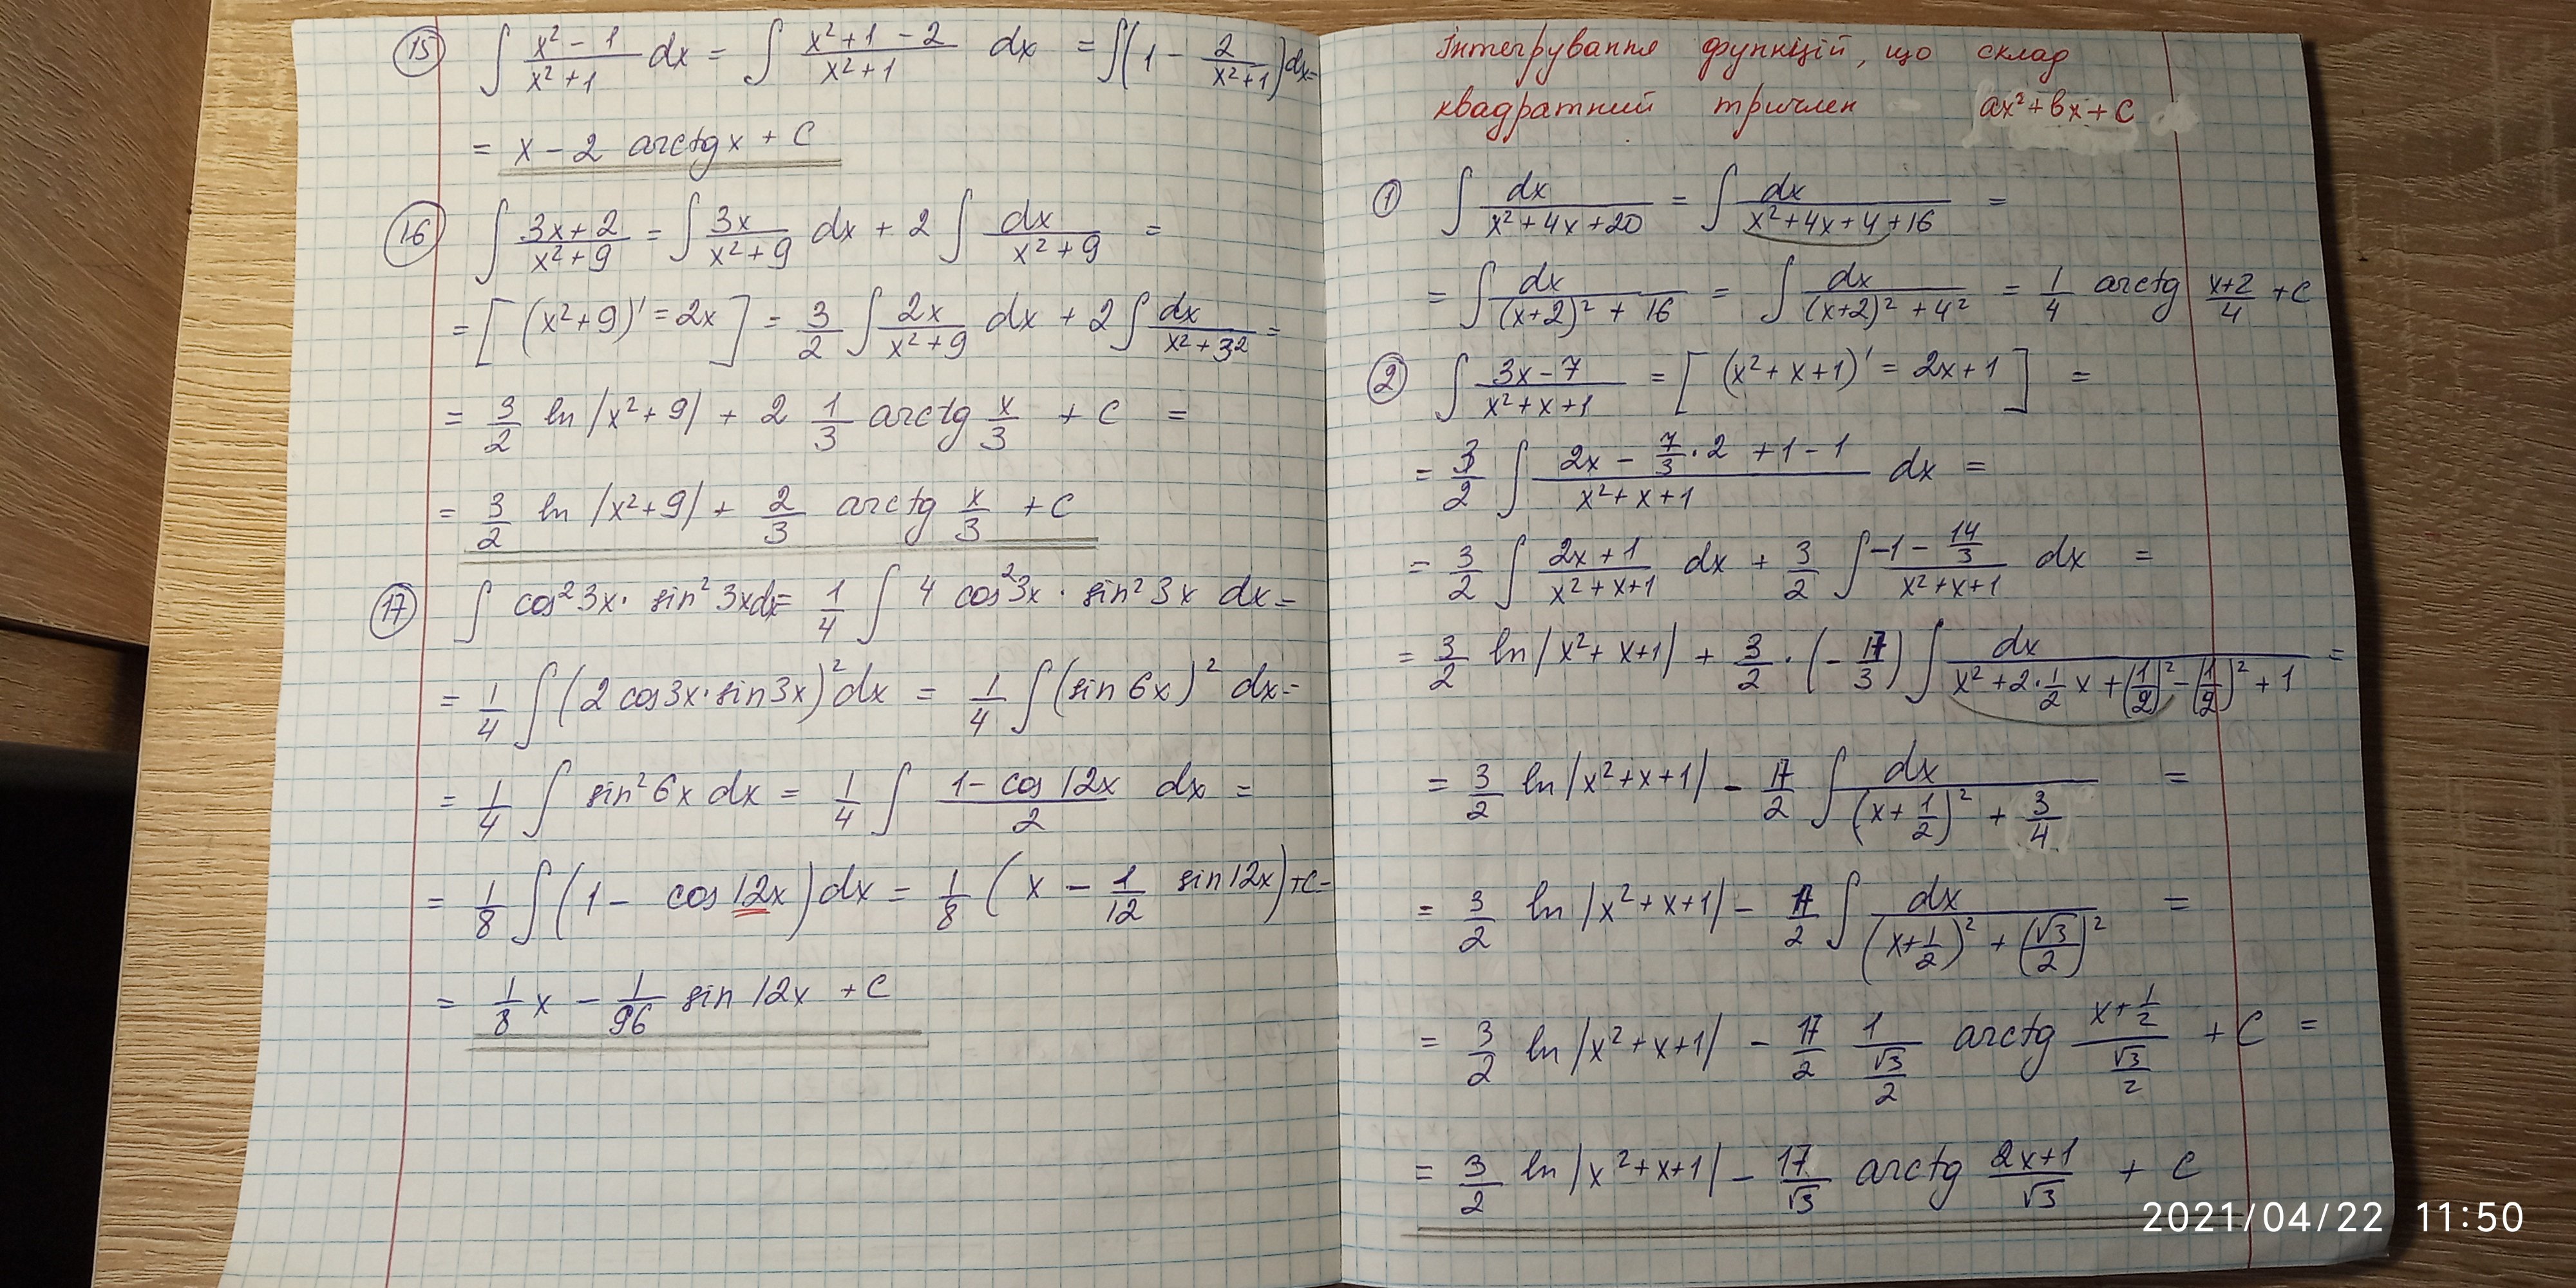 15 ∫ (x² - 1)/(x² + 1) dx = ∫ (x² + 1 - 2)/(x² + 1) dx = ∫(1 - 2/(x² + 1))dx =
= x - 2 arctg x + C
16 ∫ (3x + 2)/(x² + 9) = ∫ 3x/(x² + 9) dx + 2 ∫ dx/(x² + 9) =
= [(x² + 9)' = 2x] = 3/2 ∫ 2x/(x² + 9) dx + 2 ∫ dx/(x² + 3²) =
= 3/2 ln |x² + 9| + 2 1/3 arctg x/3 + C =
= 3/2 ln |x² + 9| + 2/3 arctg x/3 + C
17 ∫ cos² 3x · sin² 3x dx = 1/4 ∫ 4 cos² 3x · sin² 3x dx =
= 1/4 ∫ (2 cos 3x · sin 3x)² dx = 1/4 ∫ (sin 6x)² dx =
= 1/4 ∫ sin² 6x dx = 1/4 ∫ (1 - cos 12x)/2 dx =
= 1/8 ∫ (1 - cos 12x) dx = 1/8 (x - 1/12 sin 12x) + C =
= 1/8 x - 1/96 sin 12x + C
Інтегрування функцій, що склад
квадратний тричлен ax² + bx + c
1 ∫ dx/(x² + 4x + 20) = ∫ dx/(x² + 4x + 4 + 16) =
= ∫ dx/((x+2)² + 16) = ∫ dx/((x+2)² + 4²) = 1/4 arctg (x+2)/4 + C
2 ∫ (3x - 7)/(x² + x + 1) = [(x² + x + 1)' = 2x + 1] =
= 3/2 ∫ (2x - 7/3 · 2 + 1 - 1)/(x² + x + 1) dx =
= 3/2 ∫ (2x + 1)/(x² + x + 1) dx + 3/2 ∫ (-1 - 14/3)/(x² + x + 1) dx =
= 3/2 ln |x² + x + 1| + 3/2 · (- 17/3) ∫ dx/(x² + 2 · 1/2 x + (1/2)² - (1/2)² + 1) =
= 3/2 ln |x² + x + 1| - 17/2 ∫ dx/((x + 1/2)² + 3/4) =
= 3/2 ln |x² + x + 1| - 17/2 ∫ dx/((x + 1/2)² + (√3/2)²) =
= 3/2 ln |x² + x + 1| - 17/2 1/(√3/2) arctg (x + 1/2)/(√3/2) + C =
= 3/2 ln |x² + x + 1| - 17/√3 arctg (2x + 1)/√3 + C
2021/04/22 11:50